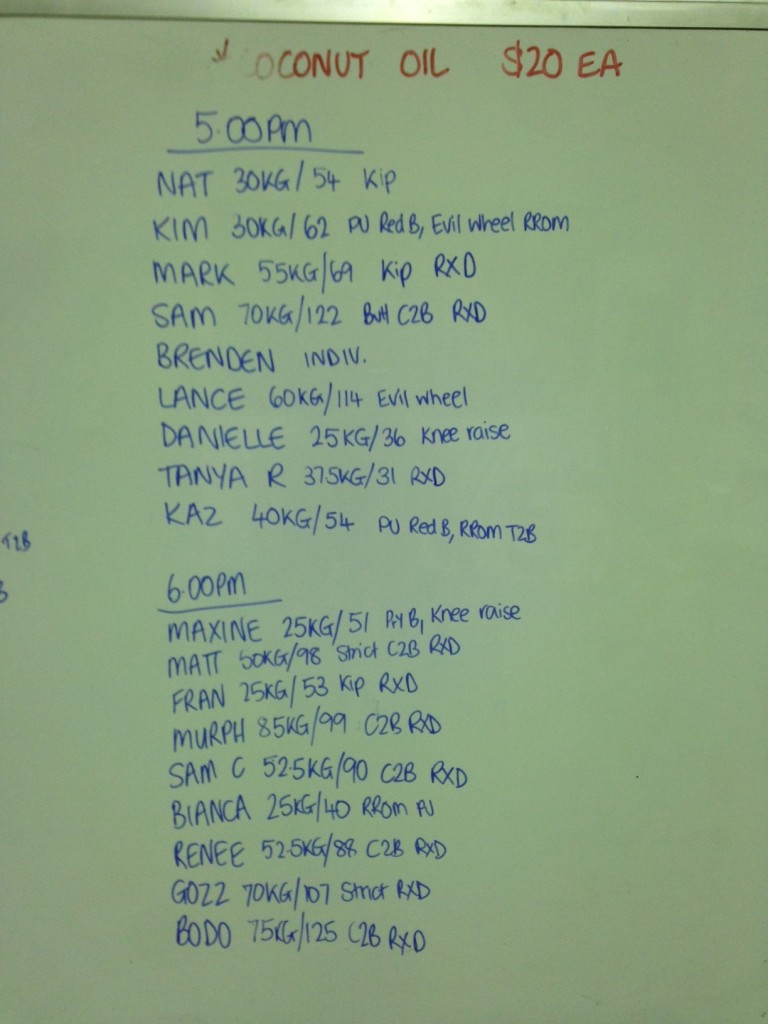 COCONUT OIL $20 EA
5.00PM
NAT 30KG/54 Kip
KIM 30KG/62 PU Red B, Evil wheel RROM
MARK 55KG/69 Kip RXD
SAM 70KG/122 Butt C2B RXD
BRENDEN INDIV.
LANCE 60KG/114 Evil wheel
DANIELLE 25KG/36 Knee raise
TANYA R 37.5KG/31 RXD
KAZ 40KG/54 PU Red B, RROM T2B
T2B
B
6.00PM
MAXINE 25KG/51 B, Knee raise
MATT 50KG/98 Strict C2B RXD
FRAN 25KG/53 Kip RXD
MURPH 85KG/99 C2B RXD
SAM C 52.5KG/90 C2B RXD
BIANCA 25KG/40 RROM PU
RENEE 52.5KG/88 C2B RXD
GOZZ 70KG/107 Strict RXD
BODO 75KG/125 C2B RXD